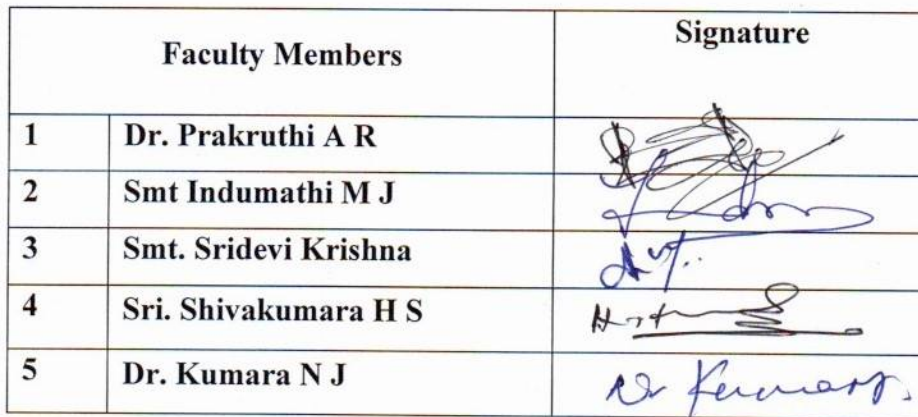 Faculty Members Signature
1 Dr. Prakruthi A R
2 Smt Indumathi M J
3 Smt. Sridevi Krishna
4 Sri. Shivakumara H S
5 Dr. Kumara N J